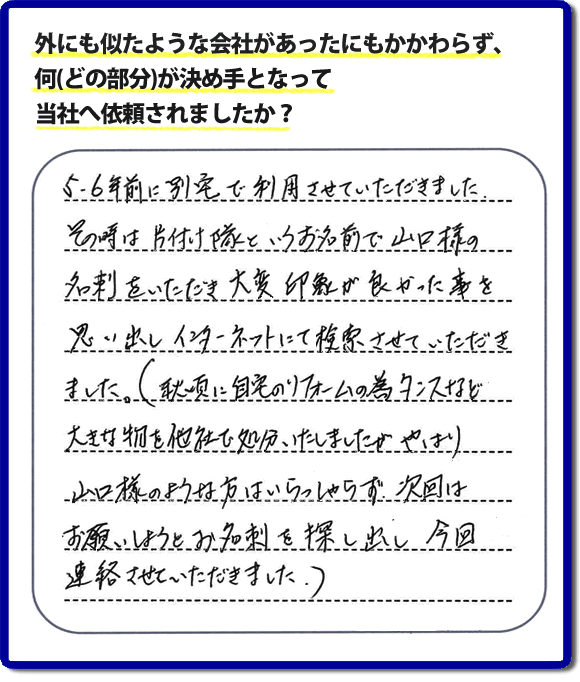 外にも似たような会社があったにもかかわらず、
何(どの部分)が決め手となって
当社へ依頼されましたか？
5-6年前に別宅で利用させていただきました.
その時は片付け隊というお名前で山口様の
名刺をいただき大変印象が良かった事を
思い出しインターネットにて検索させていただき
ました。(秋頃に自宅のリフォームの為タンスなど
大きな物を他社で処分いたしましたが やはり
山口様のような方はいらっしゃらず 次回は
お願いしようとお名刺を探し出し 今回
連絡させていただきました.)